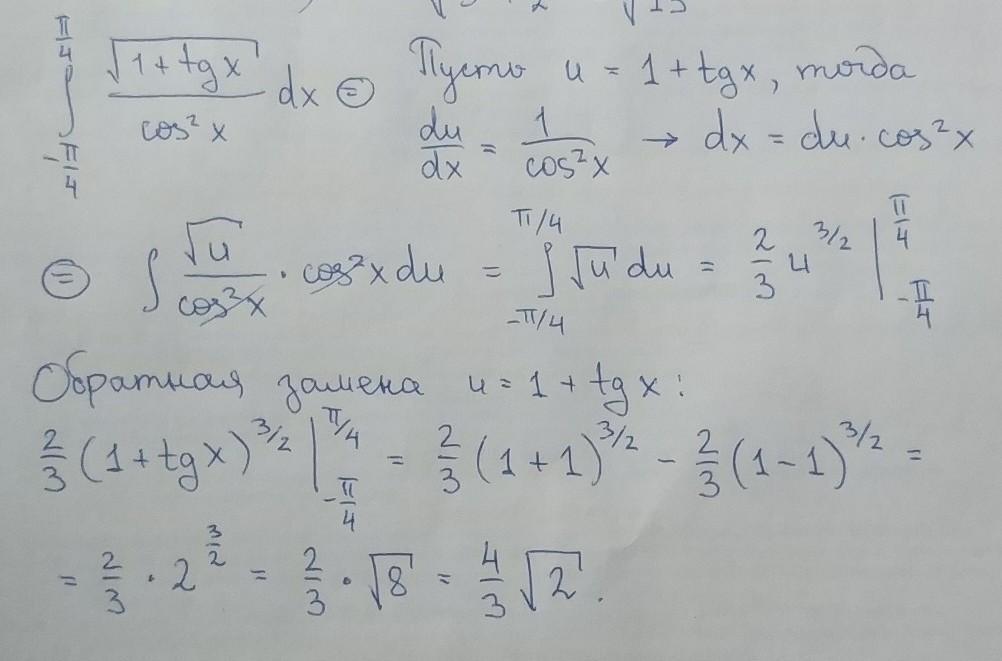 ∫_{-π/4}^{π/4} √(1+tg x)/cos²x dx ⊜ Пусть u = 1+tg x, тогда
du/dx = 1/cos²x → dx = du·cos²x
⊜ ∫ √u/cos²x · cos²x du = ∫_{-π/4}^{π/4} √u du = 2/3 u^{3/2} |_{-π/4}^{π/4}
Обратная замена u = 1 + tg x :
2/3 (1+tg x)^{3/2} |_{-π/4}^{π/4} = 2/3 (1+1)^{3/2} - 2/3 (1-1)^{3/2} =
= 2/3 · 2^{3/2} = 2/3 · √8 = 4/3 √2 .